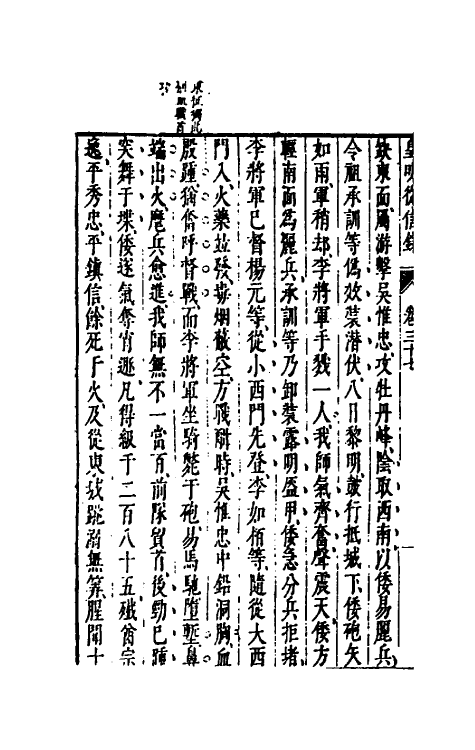 皇明從信錄 卷三十七
缺東面屬游擊吳惟忠攻牡丹峰陰取西南以倭易麗兵
令祖承訓等偽效裝潛伏八日黎明鼓行抵城下倭砲矢
如雨軍稍却李將軍手戮一人我師氣齊奮聲震天倭方
輕南面為麗兵承訓等乃卸裝露明盔甲倭急分兵拒堵
李將軍已督楊元等從小西門先登李如栢等隨從大西
門入火藥並發毒烟蔽空方戰酣時吳惟忠中鉛洞胸血
殷踵猶奮呼督戰而李將軍坐騎斃于砲易馬馳墮塹鼻
端出火麾兵愈進我師無不一當百前隊貿首後勁已踵
突舞于堞倭遂氣奪宵遁凡得級千二百八十五殱酋宗
逸平秀忠平鎮信餘死于火及從東城跳溺無筭腥聞十
東征獨此